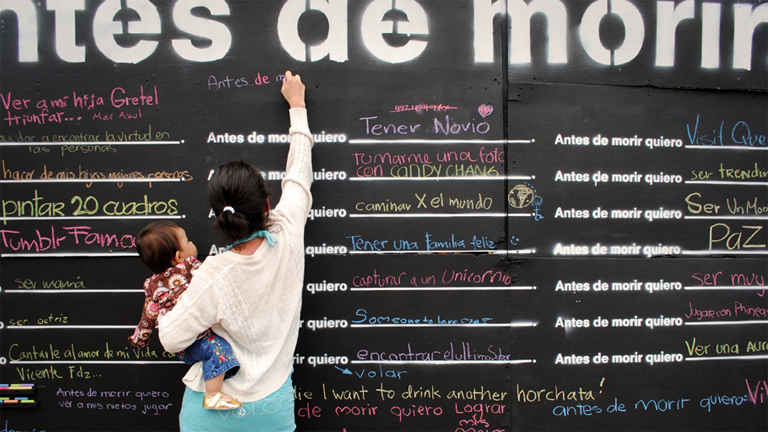 ntes de morir
Antes de m
Ver a mi hija Gretel
triunfar... Mar Azul
ayudar a encontrar la virtud en
las personas
hacer de mis hijos mejores personas
pintar 20 cuadros
Tumblr Famo
ser mamá
ser actriz
Cantarle al amor de mi vida con
Vicente Fdz...
Antes de morir quiero
ver a mis nietos jugar
Antes de morir quiero Tener Novio.
Antes de quiero tomarme una foto
con CANDY CHANG.
Antes quiero caminar X el mundo
quiero Tener una familia feliz
quiero capturar a un Unicornio.
quiero Someone to love
quiero encontrar el ultimo
volar
die I want to drink another horchata!
de morir quiero Lograr
mts
Antes de morir quiero Visit Que
Antes de morir quiero ser trendin
Antes de morir quiero Ser un Mo
Antes de morir quiero PaZ
Antes de morir quiero ser muy
Antes de morir quiero Jugar con Phinea
Antes de morir quiero Ver una aur
antes de morir quiero: Vi